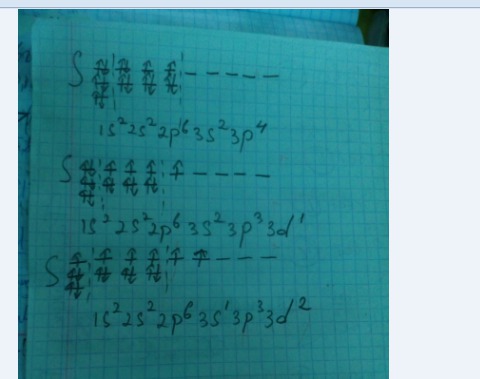 S
1s²2s²2p⁶3s²3p⁴
S
1s²2s²2p⁶3s²3p³3d¹
S
1s²2s²2p⁶3s¹3p³3d²